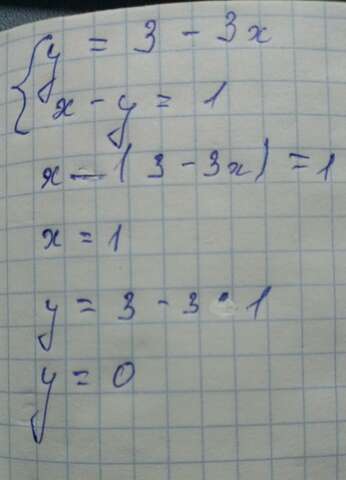 { y = 3 - 3x
x - y = 1
x - (3 - 3x) = 1
x = 1
y = 3 - 3 · 1
y = 0